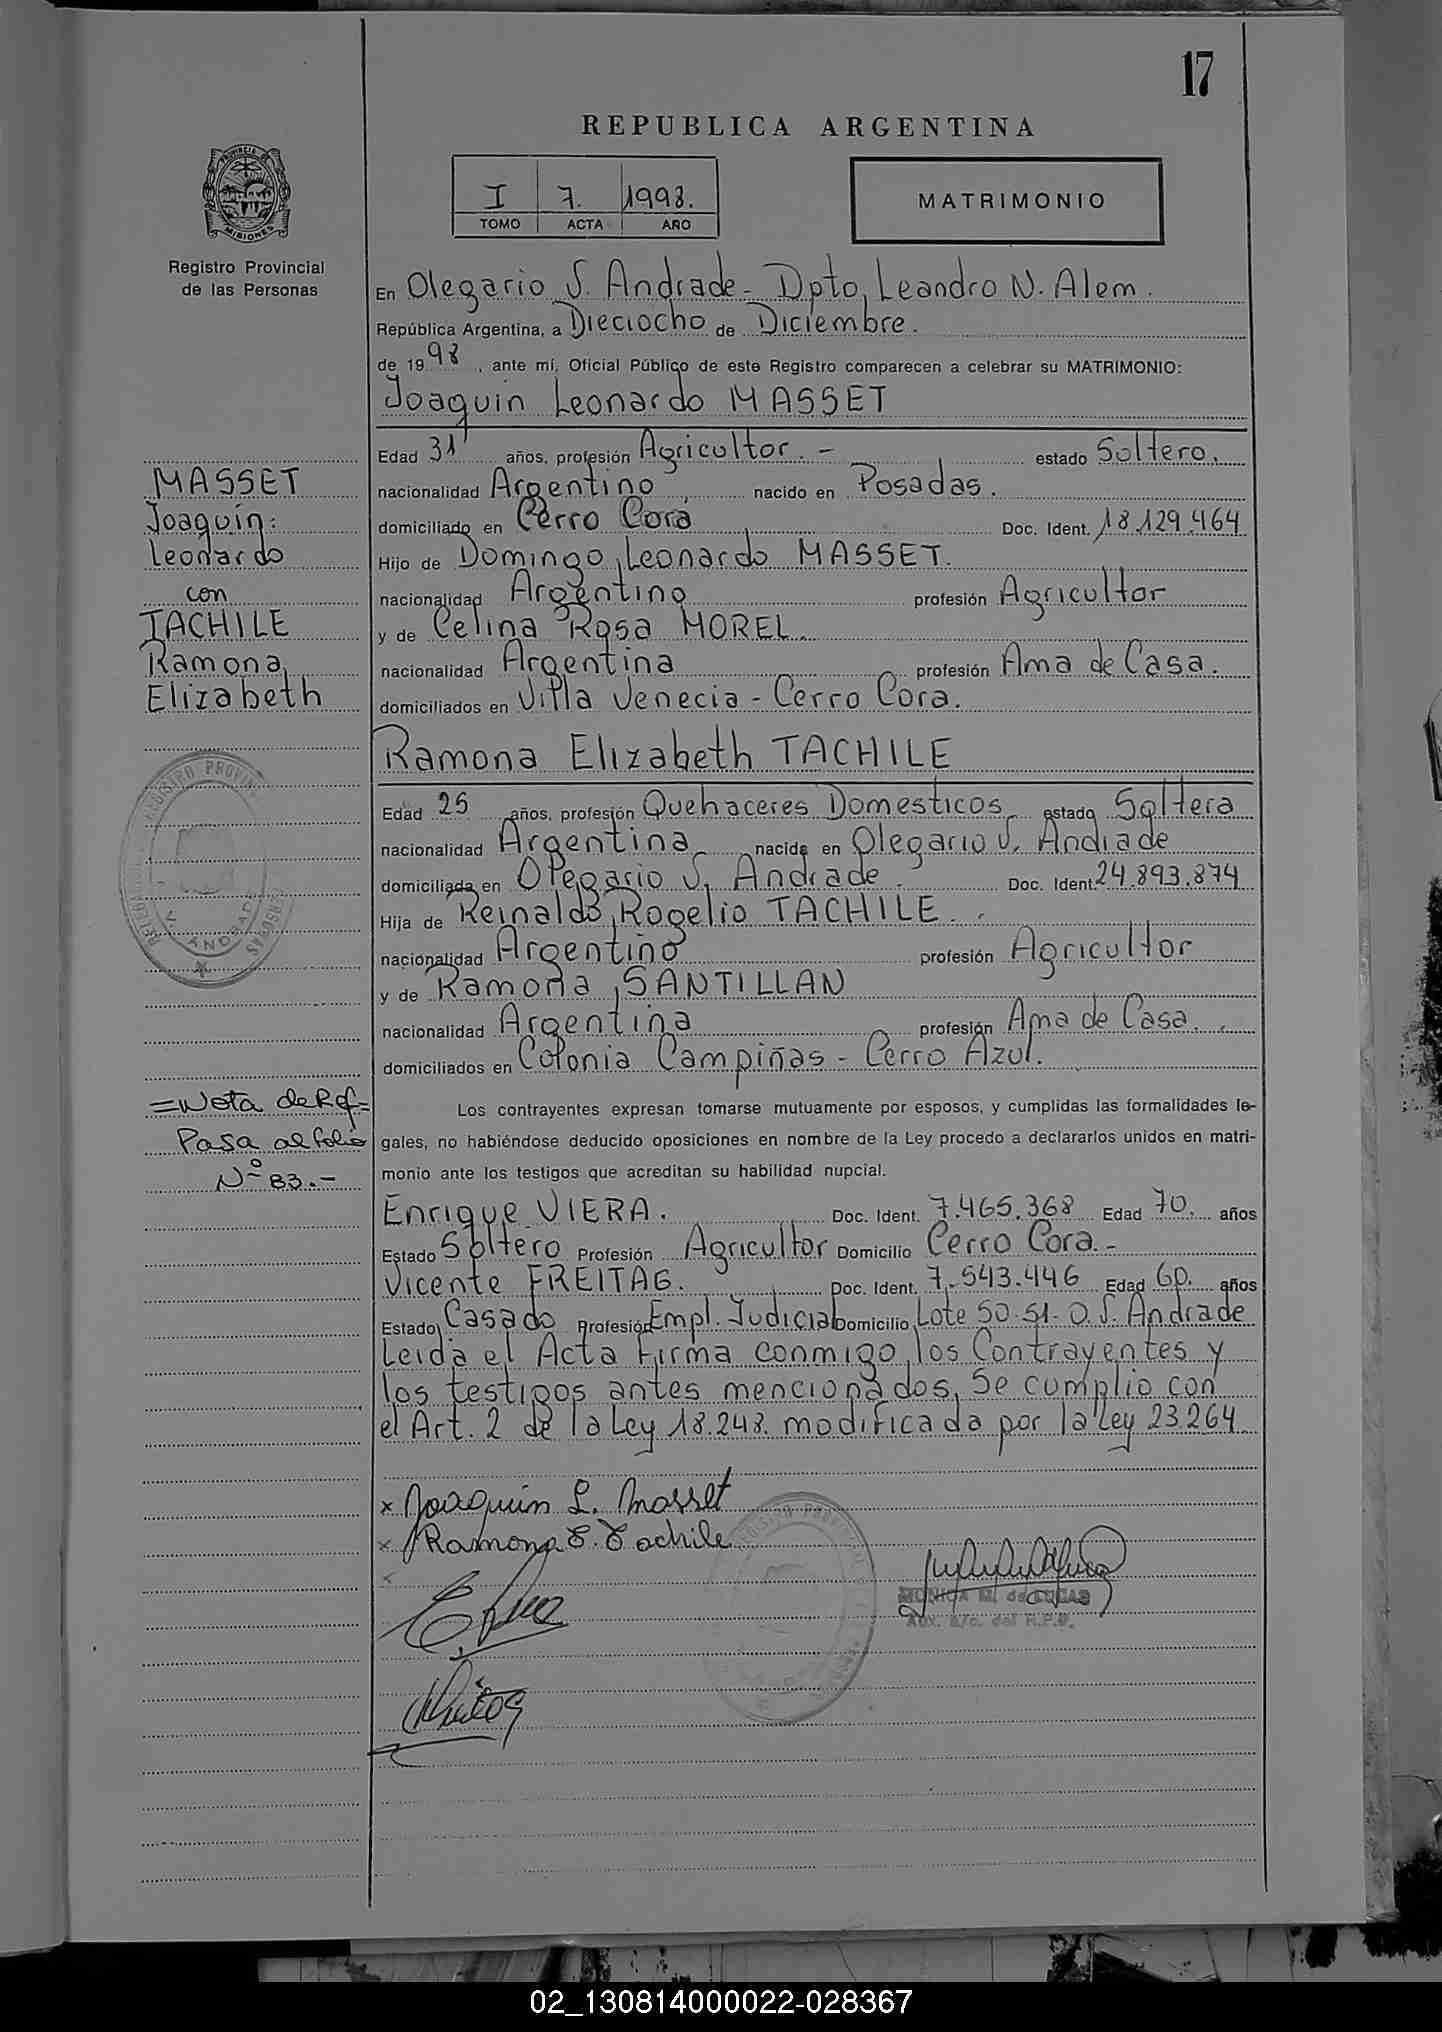 17
REPUBLICA ARGENTINA
I 7. 1998.
TOMO ACTA AÑO
MATRIMONIO
PROVINCIA DE
MISIONES
Registro Provincial
de las Personas
En Olegario V. Andrade - Dpto, Leandro N. Alem.
República Argentina, a Dieciocho de Diciembre.
de 1998, ante mí, Oficial Público de este Registro comparecen a celebrar su MATRIMONIO:
Joaquin Leonardo MASSET
Edad 31 años, profesión Agricultor. - estado Soltero.
nacionalidad Argentino, nacido en Posadas.
domiciliado en Cerro Cora Doc. Ident. 18.129.464
Hijo de Domingo Leonardo MASSET.
nacionalidad Argentino profesión Agricultor
y de Celina Rosa MOREL.
nacionalidad Argentina profesión Ama de Casa.
domiciliados en Villa Venecia - Cerro Cora.
MASSET
Joaquin:
Leonardo
con
TACHILE
Ramona
Elizabeth
Ramona Elizabeth TACHILE
Edad 25 años, profesión Quehaceres Domesticos estado Soltera
nacionalidad Argentina nacida en Olegario V. Andrade
domiciliada en Olegario V. Andrade. Doc. Ident. 24.893.874
Hija de Reinaldo Rogelio TACHILE.
nacionalidad Argentino profesión Agricultor
y de Ramona SANTILLAN
nacionalidad Argentina profesión Ama de Casa.
domiciliados en Colonia Campiñas - Cerro Azul.
=Nota de Ref=
Pasa al folio
Nº 83.-
Los contrayentes expresan tomarse mutuamente por esposos, y cumplidas las formalidades le-
gales, no habiéndose deducido oposiciones en nombre de la Ley procedo a declararlos unidos en matri-
monio ante los testigos que acreditan su habilidad nupcial.
Enrique VIERA. Doc. Ident. 7.465.368 Edad 70. años
Estado Soltero Profesión Agricultor Domicilio Cerro Cora.-
Vicente FREITAG. Doc. Ident. 7.543.446 Edad 60. años
Estado Casado Profesión Empl. Judicial Domicilio Lote 50-51-O.V. Andrade
Leida el Acta Firma conmigo, los Contrayentes y
los testigos antes mencionados, Se cumplio con
el Art. 2 de la Ley 18.248. modificada por la Ley 23.264
x Joaquin L. Masset
x Ramona E. Tachile
x
MONICA M. de LUCAS
Aux. a/c. del R.P.P.
02_130814000022-028367